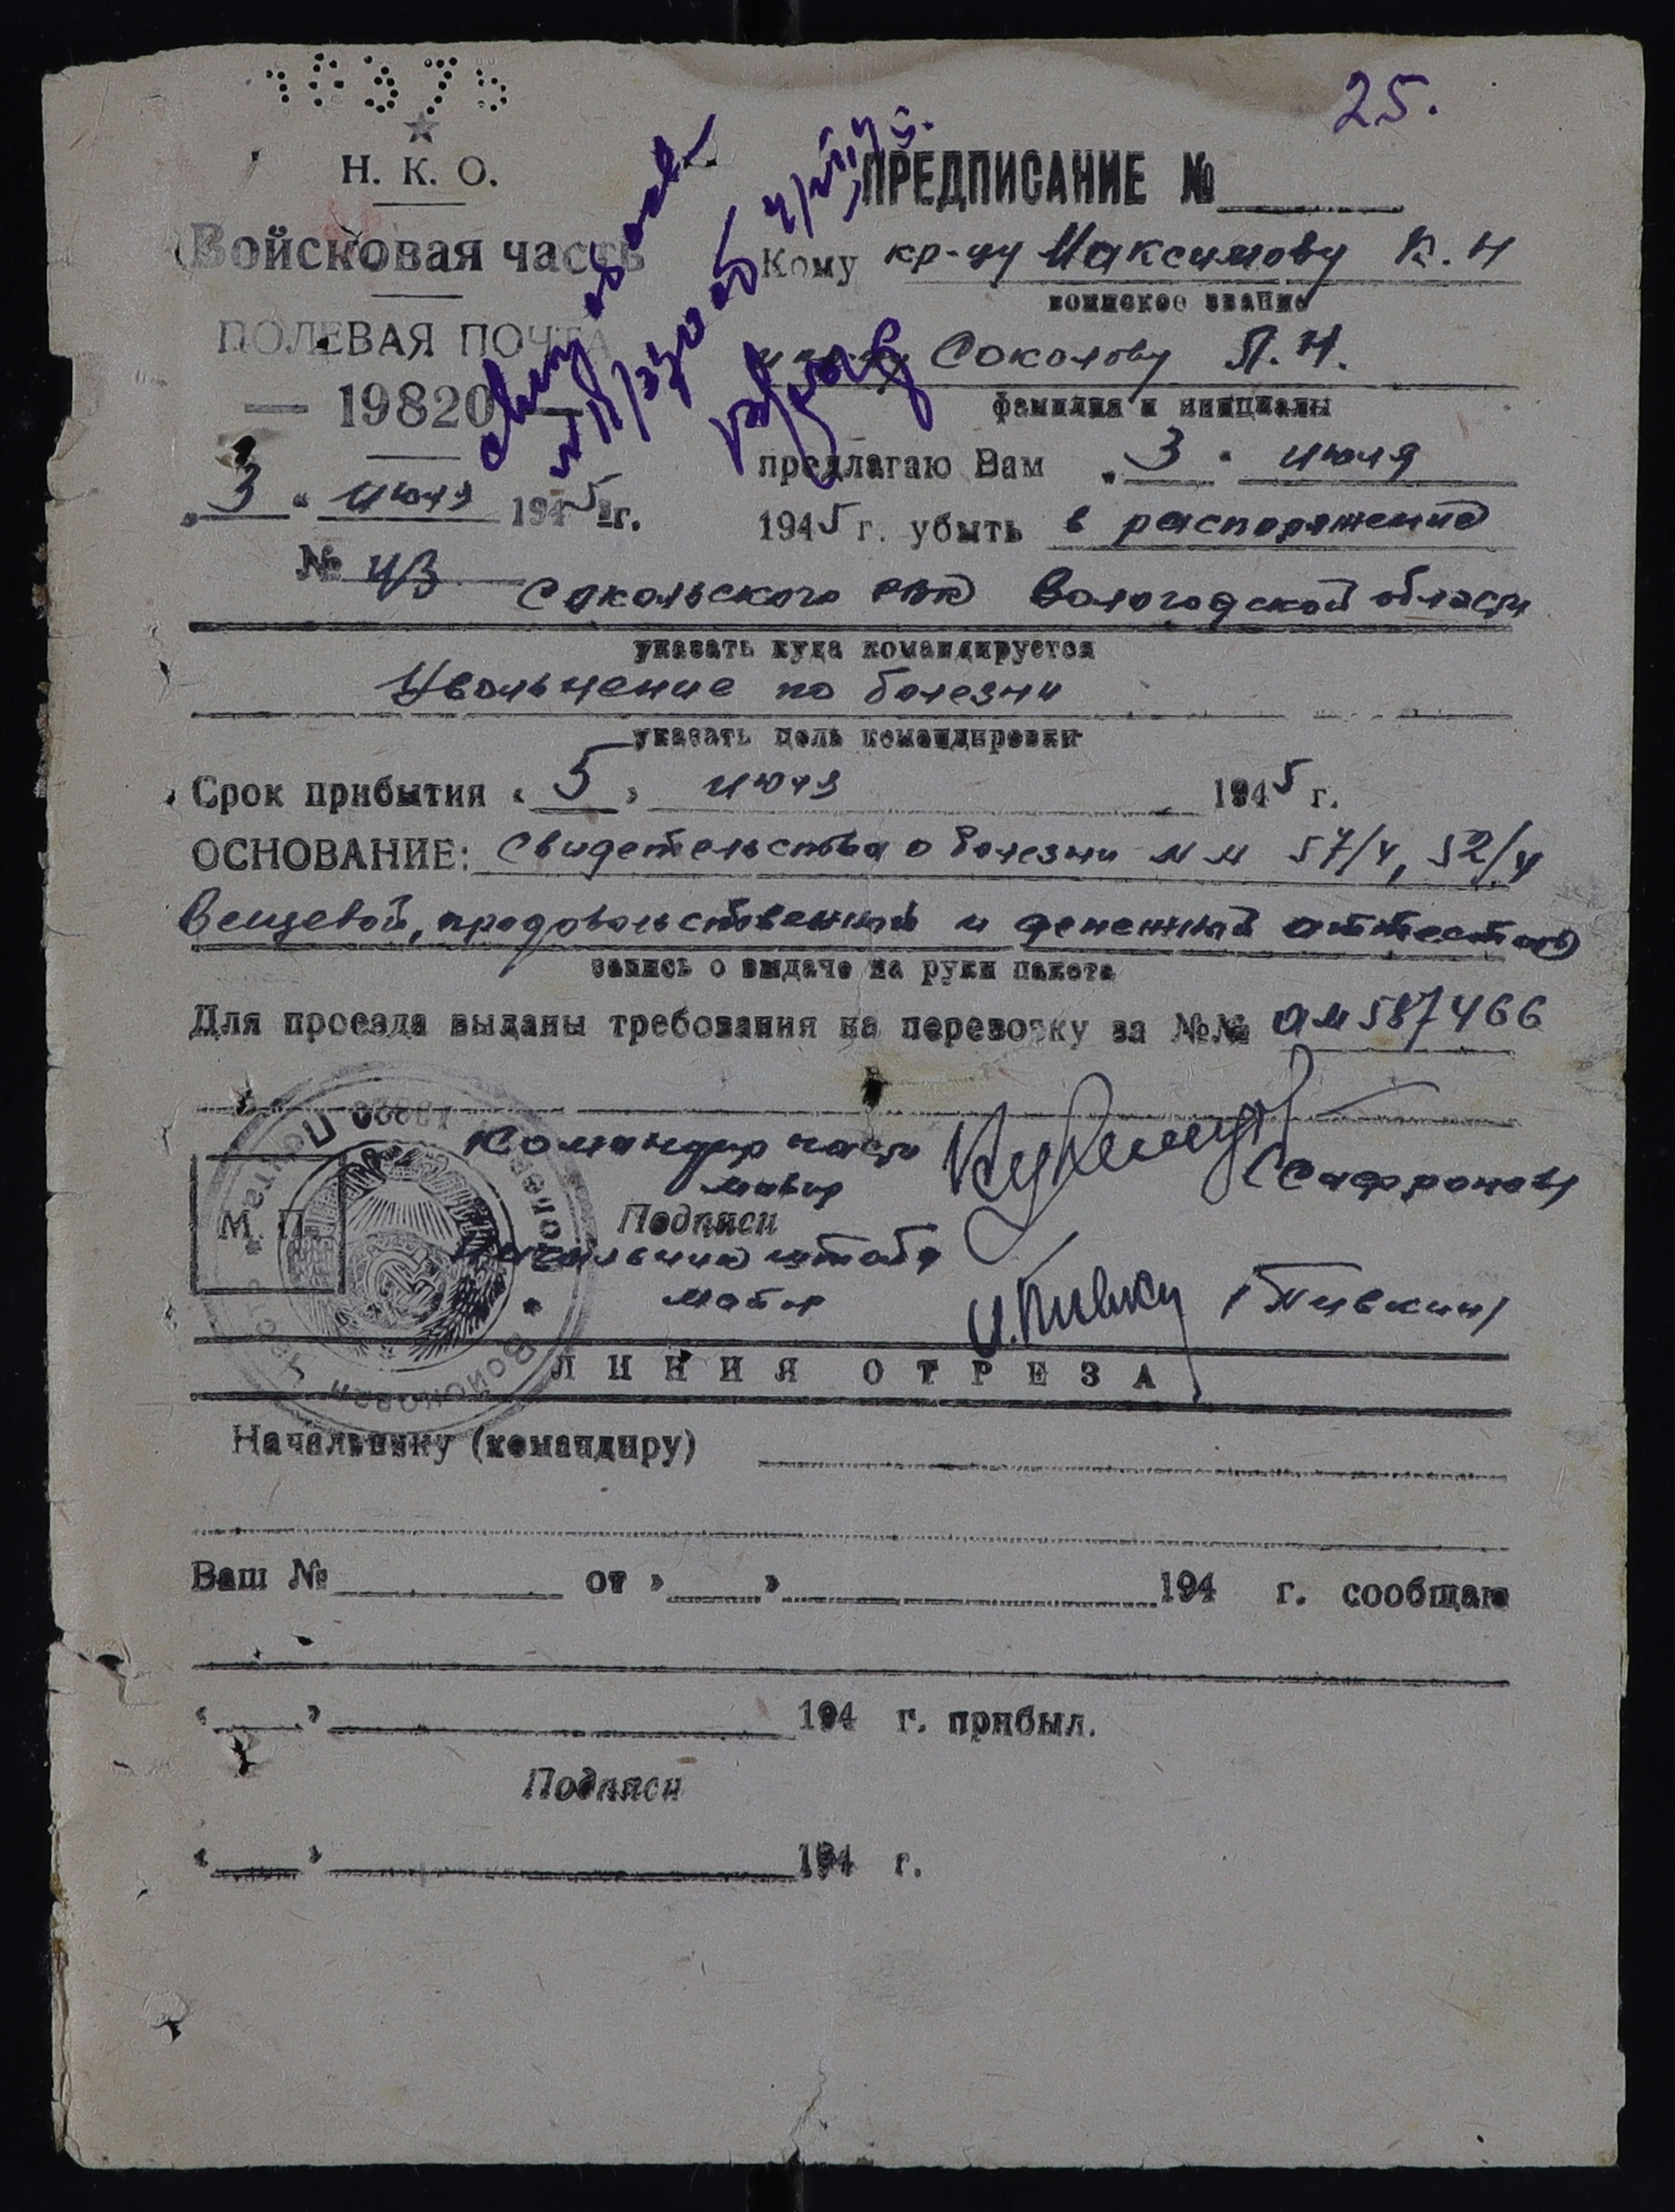 16375
25.
Н. К. О.
Войсковая часть
ПОЛЕВАЯ ПОЧТА
— 19820 —
„3“ июля 1945 г.
№ 43
ПРЕДПИСАНИЕ №
Кому кр-цу Максимову К. Н
воинское звание
Соколову П. Н.
фамилия и инициалы
предлагаю Вам „3“ июля
1945 г. убыть в распоряжение
Сокольского РВК Вологодской области
указать куда командируется
Увольнение по болезни
указать цель командировки
Срок прибытия « 5 » июля 1945 г.
ОСНОВАНИЕ: Свидетельства о болезни № № 57/4, 52/4
Вещевой, продовольственный и денежный аттестаты
запись о выдаче на руки пакета
Для проезда выданы требования на перевозку за №№ 587466
Командир части
майор (Сафронов)
М. П.
Подписи
Начальник штаба
майор И. Пивкин (Пивкин)
Полевая Почта 19820 * Войсковая часть *
ЛИНИЯ ОТРЕЗА
Начальнику (командиру)
Ваш № от » » 194 г. сообщаю
« » 194 г. прибыл.
Подписи
« » 194 г.